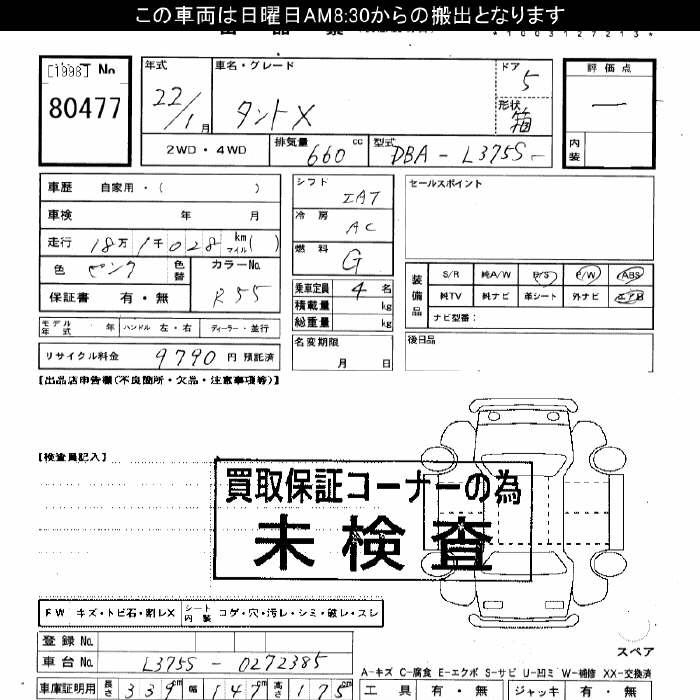 この車両は日曜日AM8:30からの搬出となります
*1003127213*
[1998] No
80477
年式
22/1月
車名・グレード
タントX
ドア
5
形状
箱
評価点
―
内装
2WD・4WD
排気量
660 cc
型式
DBA-L375S-
車歴 自家用・( )
車検 年 月
走行 18万1千028 km マイル( )
色 ピンク 色替
カラーNo.
R55
保証書 有・無
モデル年式 年 ハンドル 左・右 ディーラー・並行
リサイクル料金 9790 円 預託済
シフト
IAT
冷房
AC
燃料
G
乗車定員 4 名
積載量 kg
総重量 kg
名変期限
月 日
セールスポイント
装備品
S/R 純A/W P/S P/W ABS
純TV 純ナビ 革シート 外ナビ エアB
ナビ型番:
後日品
【出品店申告欄(不良箇所・欠品・注意事項等)】
【検査員記入】
買取保証コーナーの為
未検査
FW キズ・トビ石・割レX シート内装 コゲ・穴・汚レ・シミ・破レ・スレ
登録No.
車台No. L375S-0272385
車庫証明用 長さ 339cm 幅 147cm 高さ 175cm
スペア
A-キズ C-腐食 E-エクボ S-サビ U-凹ミ W-補修 XX-交換済
工具 有・無 ジャッキ 有・無